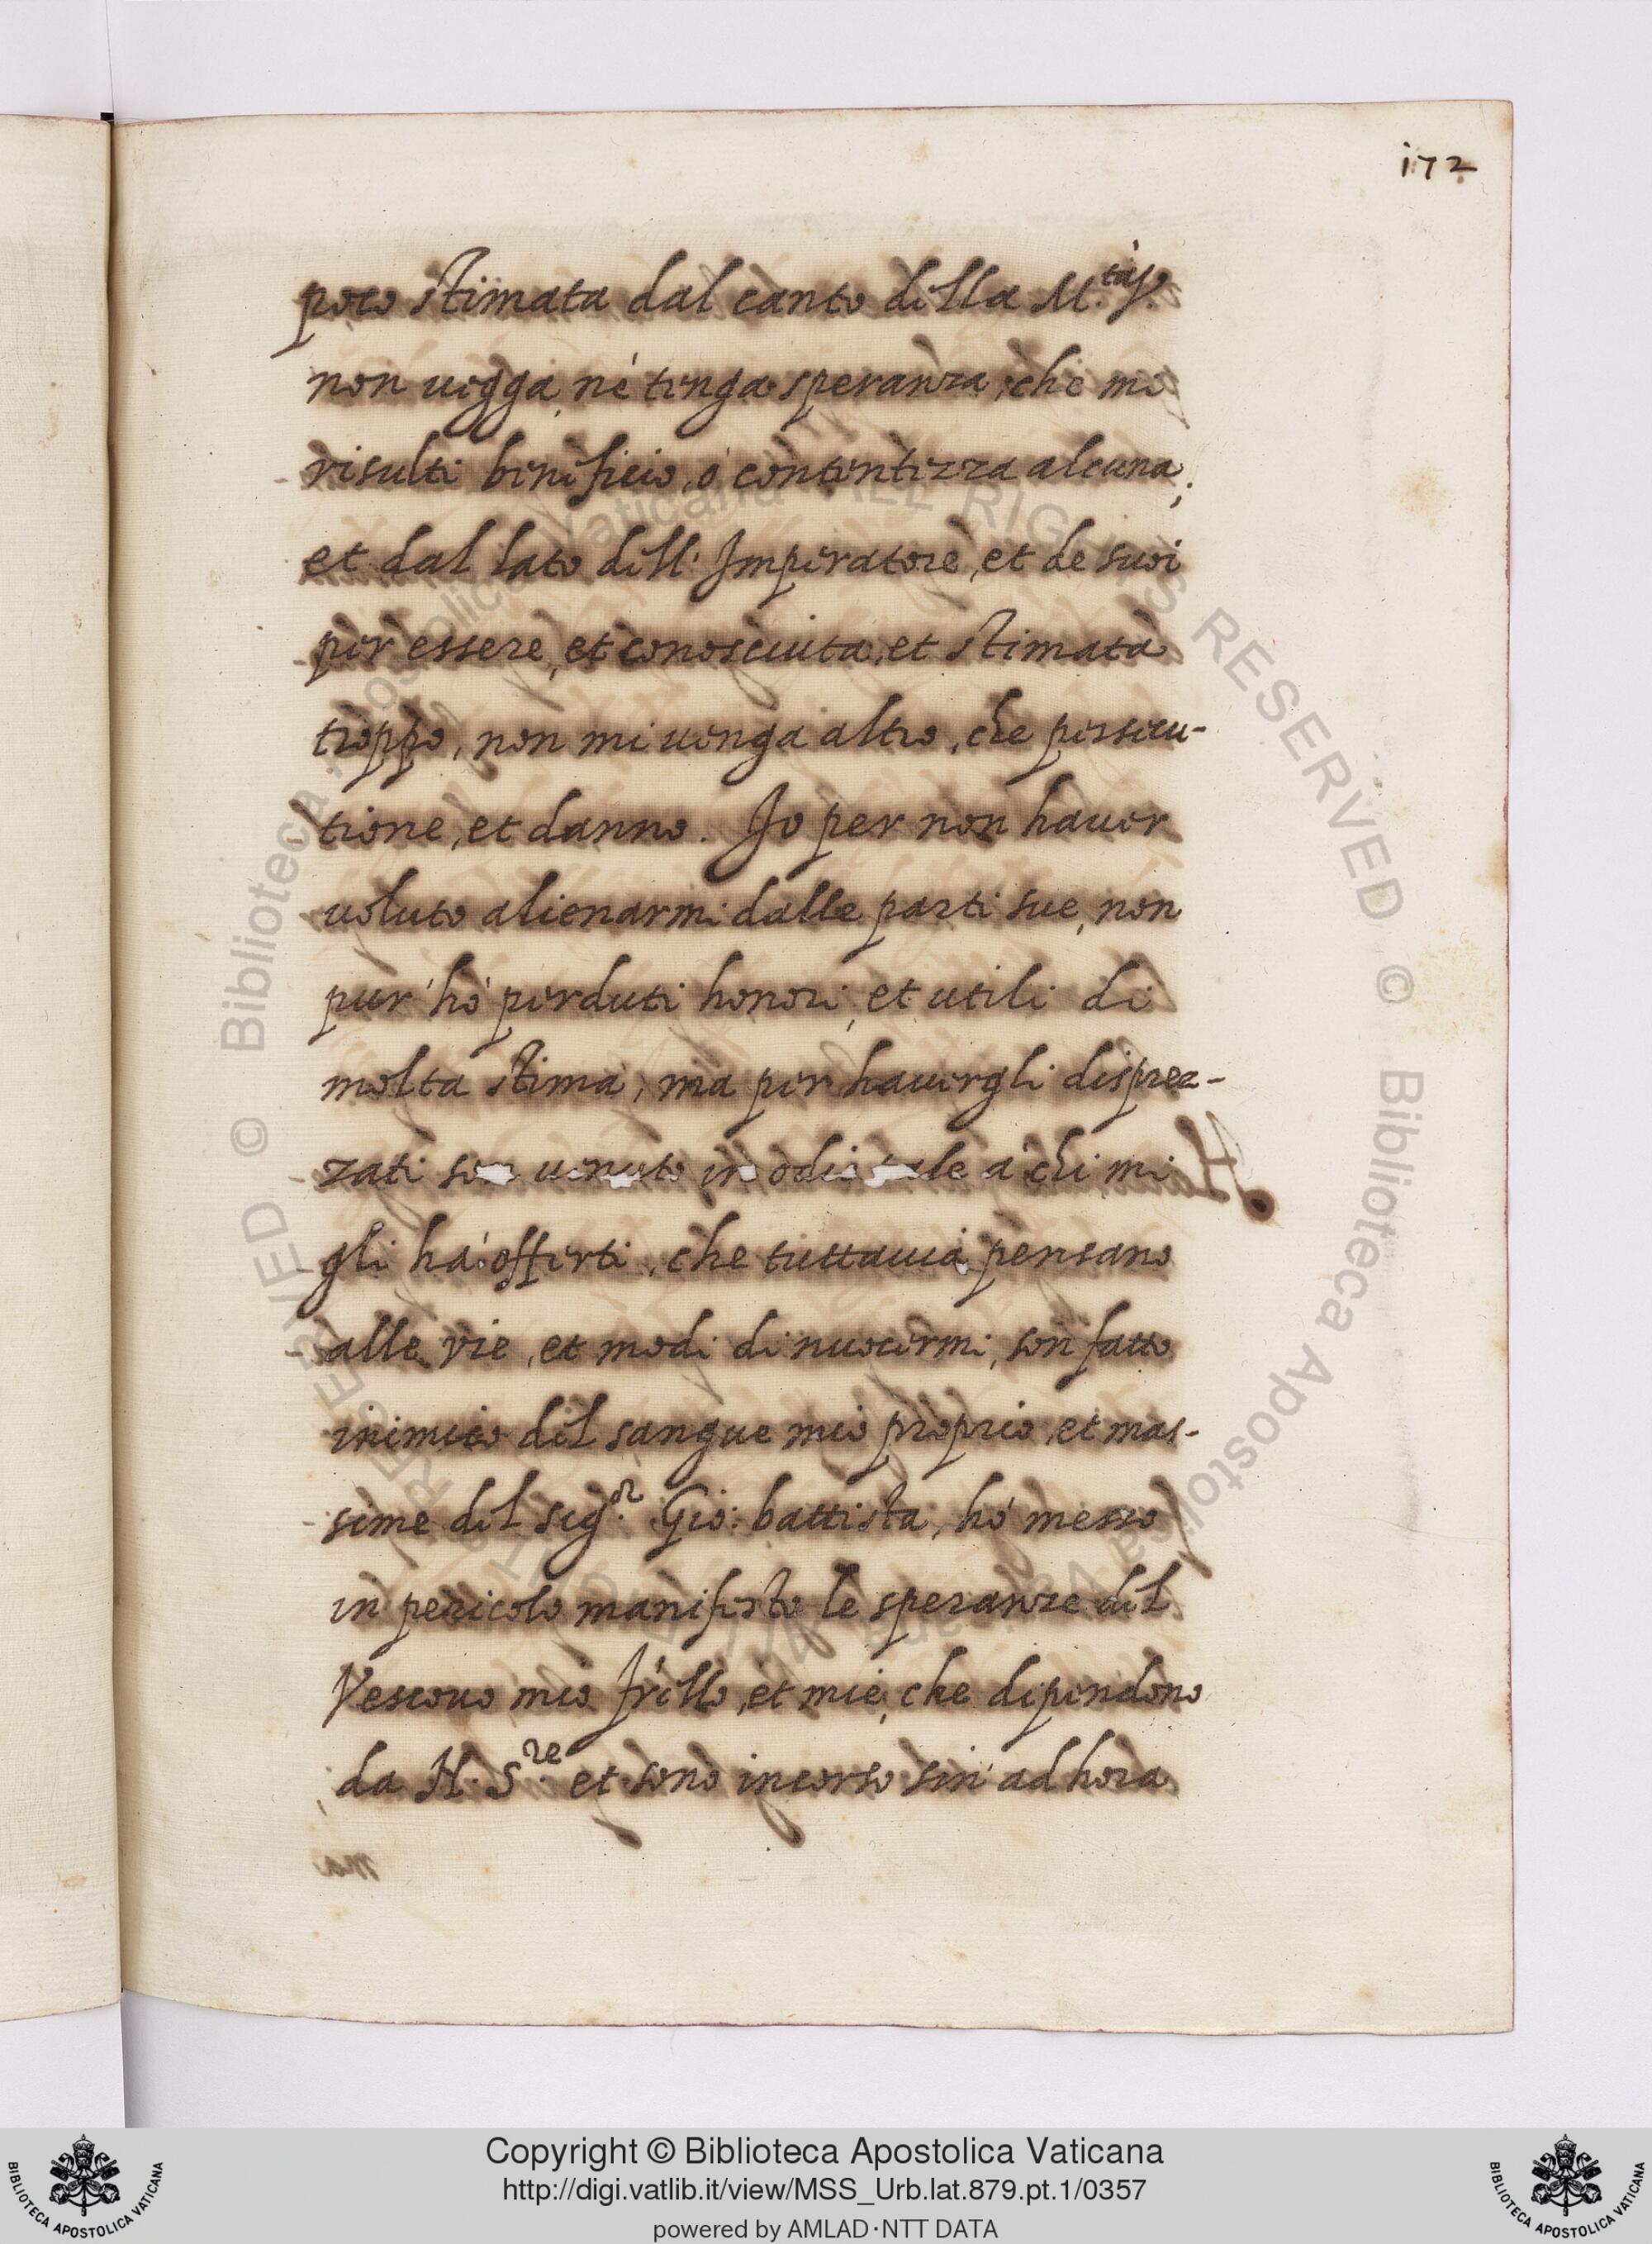 172
poco stimata dal canto della M.tà S.
non uegga, né tenga speranza, che me
risulti beneficio, ó contentezza alcuna;
et dal lato dell' Imperatore, et de suoi
per essere, et conosciuta, et stimata
troppo, non mi uenga altro, che persecu-
tione, et danno. Io per non hauer
uoluto alienarmi dalle parti sue, non
pur' hó perduti honori, et utili di
molta stima, ma per hauergli disprez-
zati son uenuto in odio tale á chi mi
gli há offerti, che tuttauia pensano
alle vie, et modi di nuocermi, son fatto
inimico del sangue mio proprio, et mas-
sime del Sig.or Gio: battista, hó messo
in pericolo manifesto le speranze del
Vescouo mio fr'ello, et mie, che dependono
da N. S.re et sono incorso sin' ad hora
Copyright © Biblioteca Apostolica Vaticana
http://digi.vatlib.it/view/MSS_Urb.lat.879.pt.1/0357
powered by AMLAD·NTT DATA
BIBLIOTECA APOSTOLICA VATICANA
BIBLIOTECA APOSTOLICA VATICANA
© Biblioteca Apostolica Vaticana ALL RIGHTS RESERVED © Biblioteca Apostolica Vaticana ALL RIGHTS RESERVED